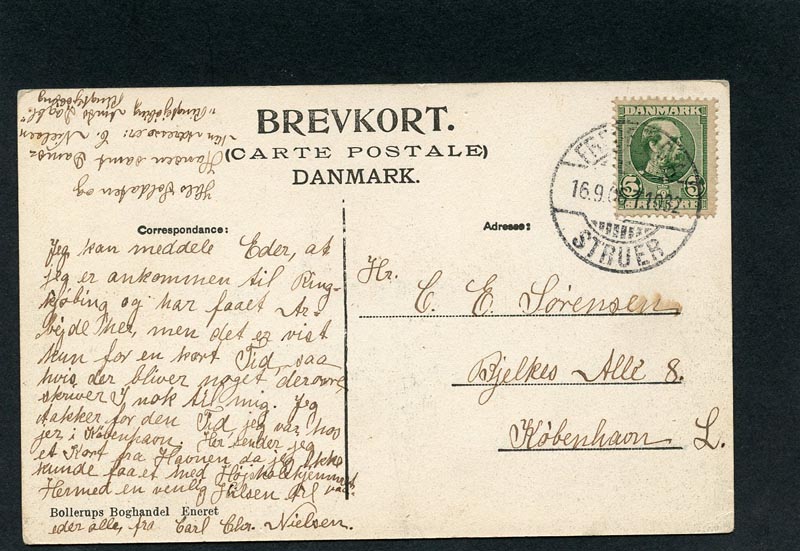 BREVKORT.
(CARTE POSTALE)
DANMARK.
DANMARK
5 5
STRUER
16.9.0
Correspondance:
Adresse:
Jeg kan meddele Eder, at
jeg er ankommen til Ring-
kjøbing og har faaet Ar-
bejde her, men det er vist
kun for en kort Tid, saa
hvis der bliver noget derovre
skriver I nok til mig. Jeg
takker for den Tid jeg var hos
jer i København. Her sender jeg
et Kort fra Havnen da jeg ikke
kunde faaet med Højskolehjemmet
Hermed en venlig Hilsen til
eder alle, fra Carl Chr. Nielsen.
Bollerups Boghandel Eneret
Hr.
C. E. Sørensen
Bjelkes Allé 8.
København L.
Hils Soldaten og
Hansen samt
Min Adresse er: C. Nielsen
"Ringkjøbing Amts Dagbl."
Ringkjøbing